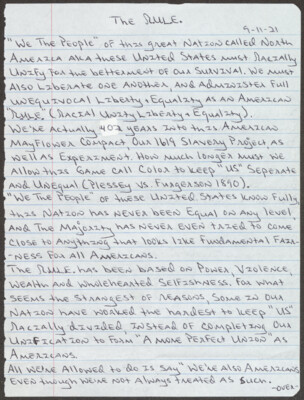 The RULE.
9-11-21
"We The People" of this great Nation called North
America aka these United States must Racially
Unify for the betterment of our survival. We must
also Liberate one another, and Administer Full
Unequivocal Liberty & Equality as an American
"RULE." (Racial Unity Liberty & Equality).
We're actually 402 years into this American
Mayflower Compact, Our 1619 Slavery Project as
well as Experiment. How much longer must we
allow this Game call Color to keep "US" Seperate
and Unequal (Plessey vs. Furgerson 1890).
"We The People" of these United States know Fully
this Nation has never been Equal on any level
and the Majority has never even tried to come
close to anything that looks like Fundamental Fair-
-ness For all Americans.
The RULE, has been based on Power, Violence,
Wealth and Wholehearted Selfishness. For what
seems the strangest of reasons, some in our
Nation have worked the hardest to keep "US"
Racially divided, instead of completing our
Unification to Form "A more Perfect Union" as
Americans.
All we're Allowed to do is say "We're also Americans"
even though we're not always treated as such.
-over-